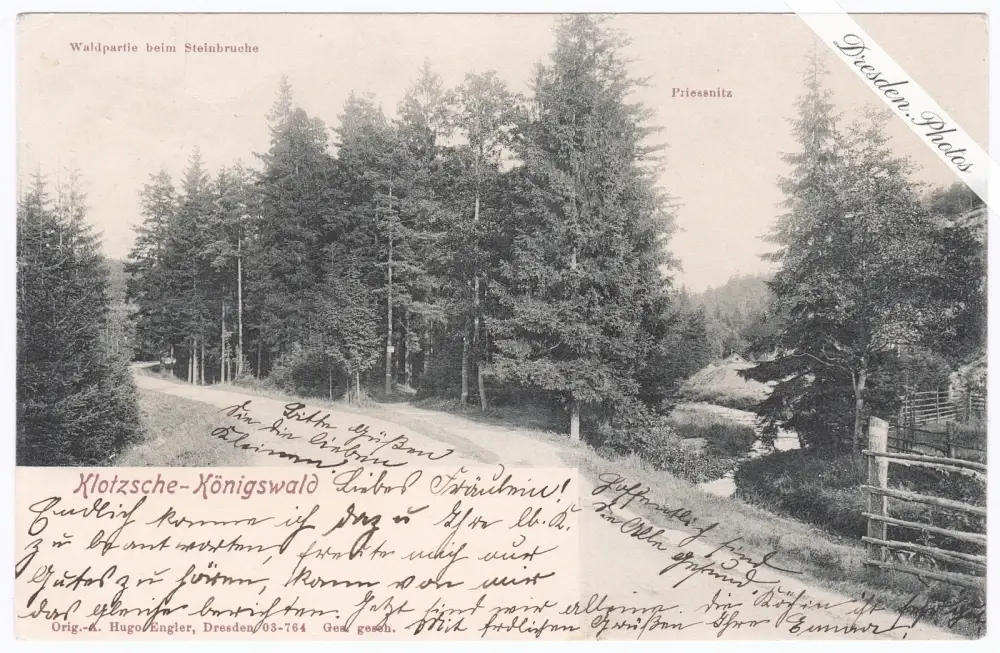 Waldpartie beim Steinbruche
Priessnitz
Dresden.Photos
Bitte Grüßen
Sie die lieben
Kleinen
Klotzsche-Königswald
Liebes Fräulein!
Endlich komme ich dazu Ihre lb. K.
zu beantworten, freute mich nur
Gutes zu hören, kann von mir
das gleiche berichten. Jetzt sind wir alleine. die Köchin ist
Mit herzlichen Grüßen Ihre Emma
Hoffentlich sind
Sie Alle gesund
Orig.-A. Hugo Engler, Dresden 03-764 Ges. gesch.